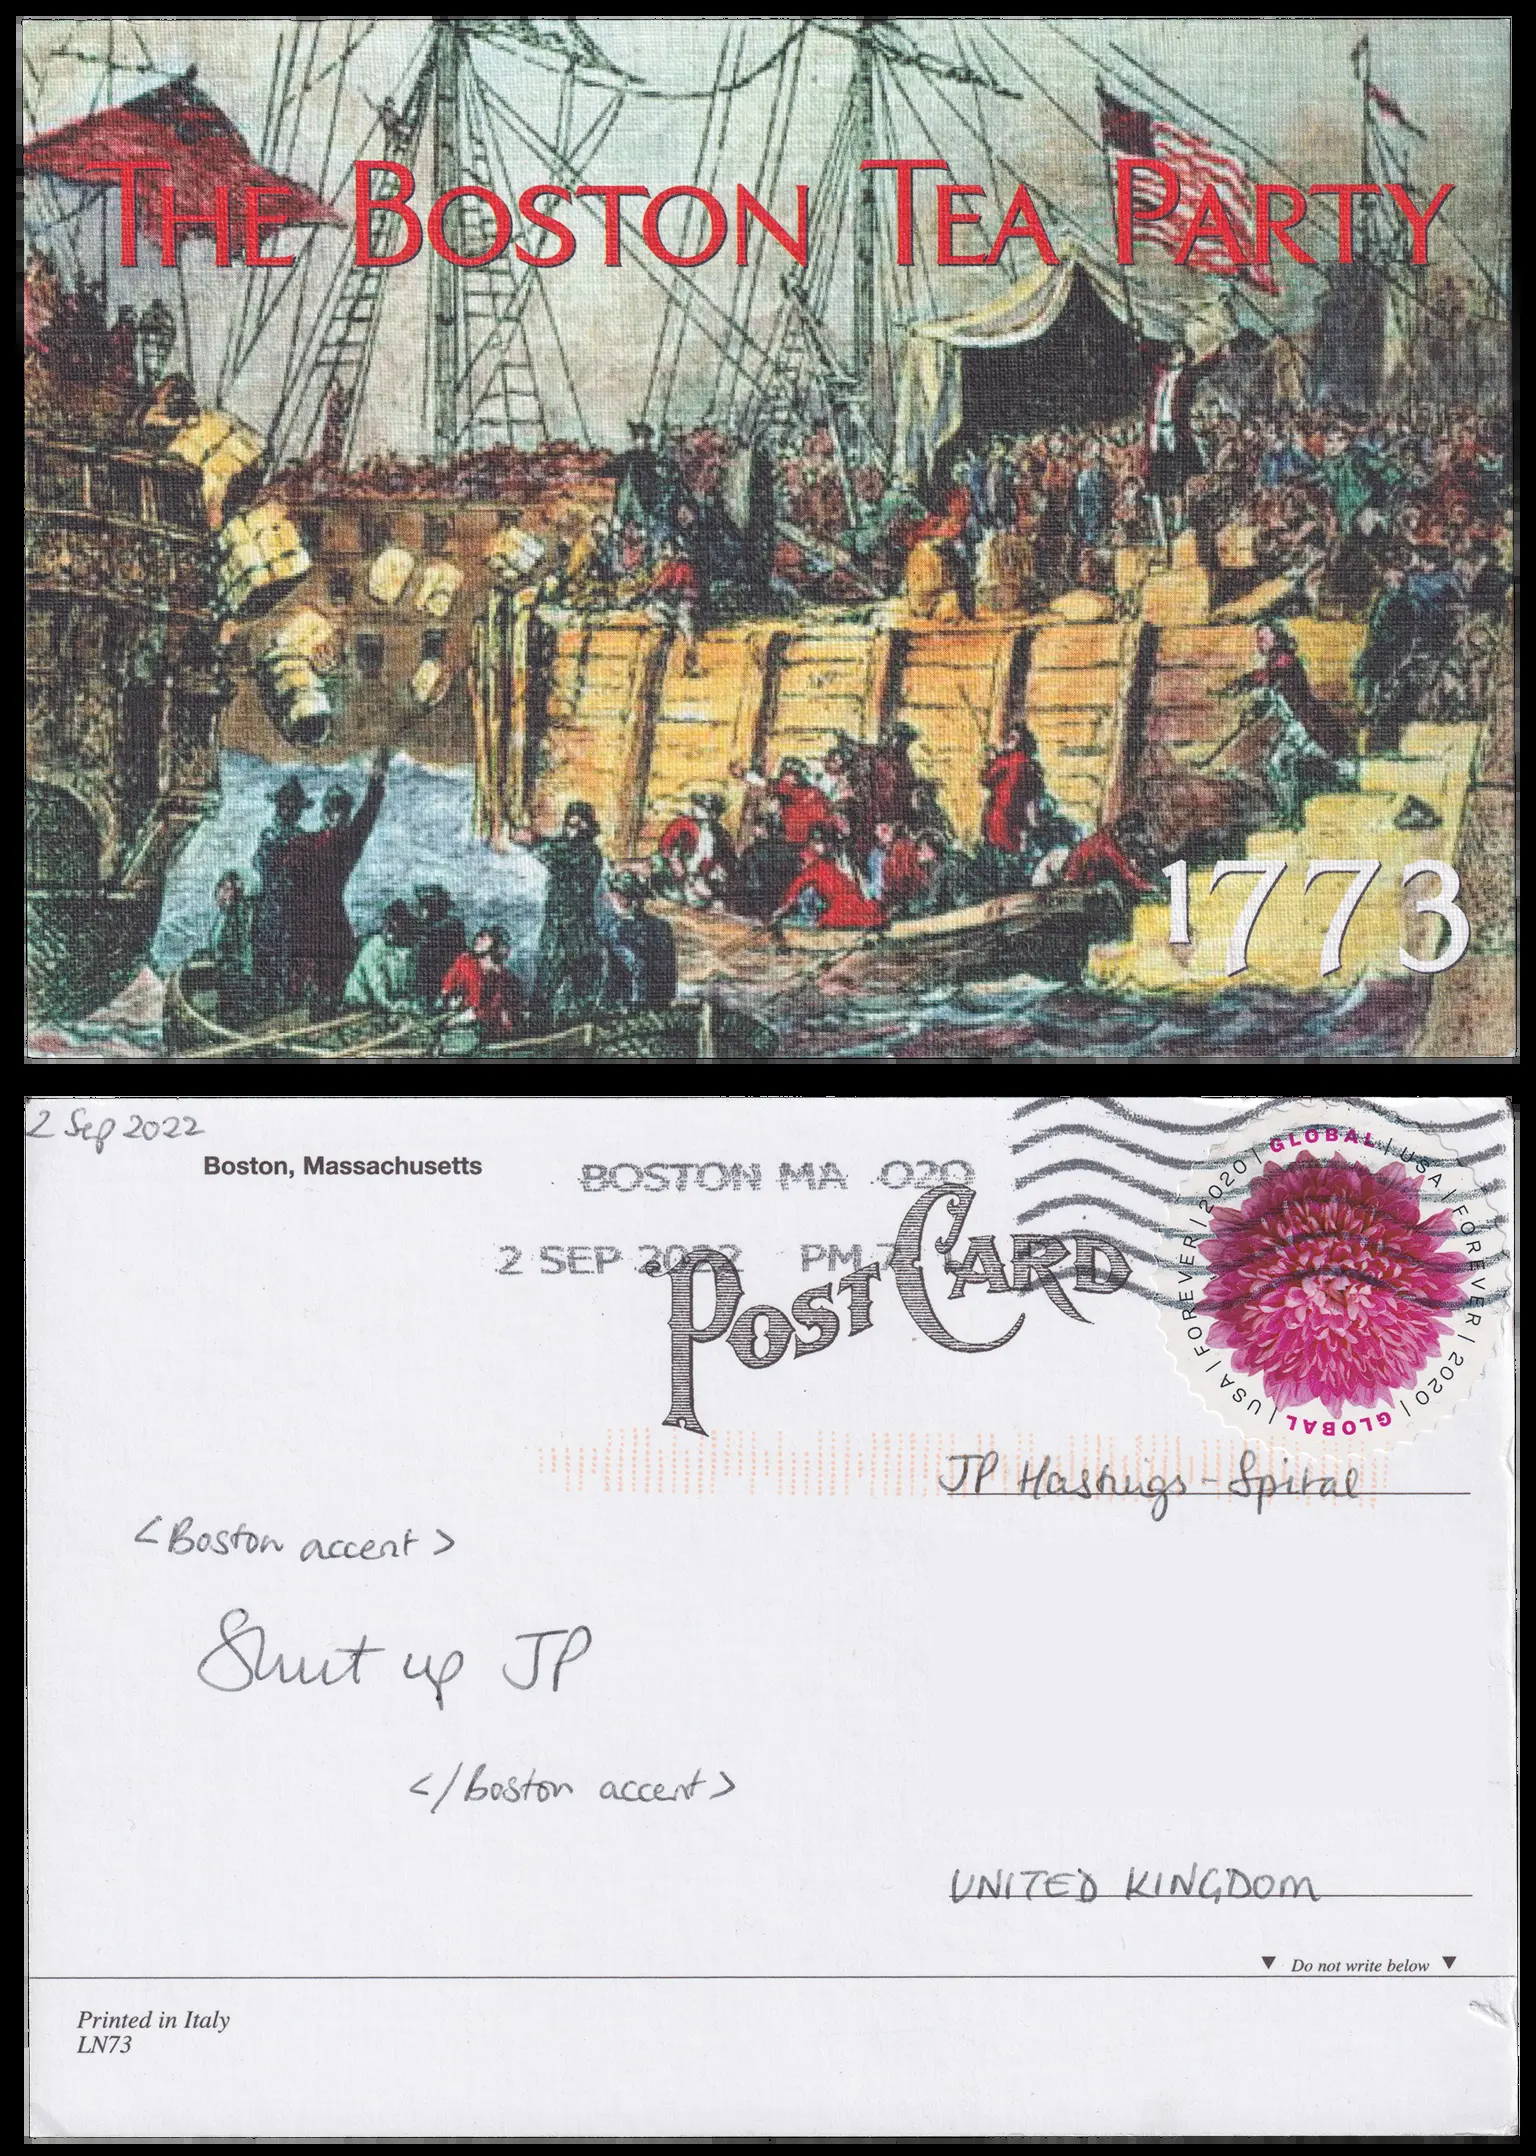 THE BOSTON TEA PARTY
1773
2 Sep 2022
Boston, Massachusetts
BOSTON MA 020
2 SEP 2022 PM 7
POST CARD
GLOBAL | USA | FOREVER | 2020 | GLOBAL | USA | FOREVER | 2020 |
JP Hastings-Spital
<Boston accent>
Shut up JP
</Boston accent>
UNITED KINGDOM
▼ Do not write below ▼
Printed in Italy
LN73